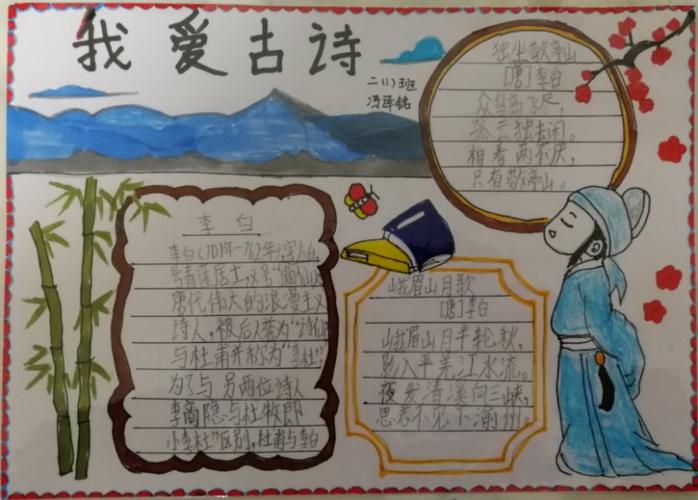 我爱古诗
二(1)班
冯泽铭
独坐敬亭山
[唐]李白
众鸟高飞尽,
孤云独去闲。
相看两不厌,
只有敬亭山。
李白
李白(701年-762年),字太白,
号青莲居士,又号"谪仙人",
唐代伟大的浪漫主义
诗人,被后人誉为"诗仙"
与杜甫并称为"李杜"
为了与另两位诗人
李商隐与杜牧即
小李杜"区别,杜甫与李白
峨眉山月歌
[唐]李白
峨眉山月半轮秋,
影入平羌江水流。
夜发清溪向三峡,
思君不见下渝州。